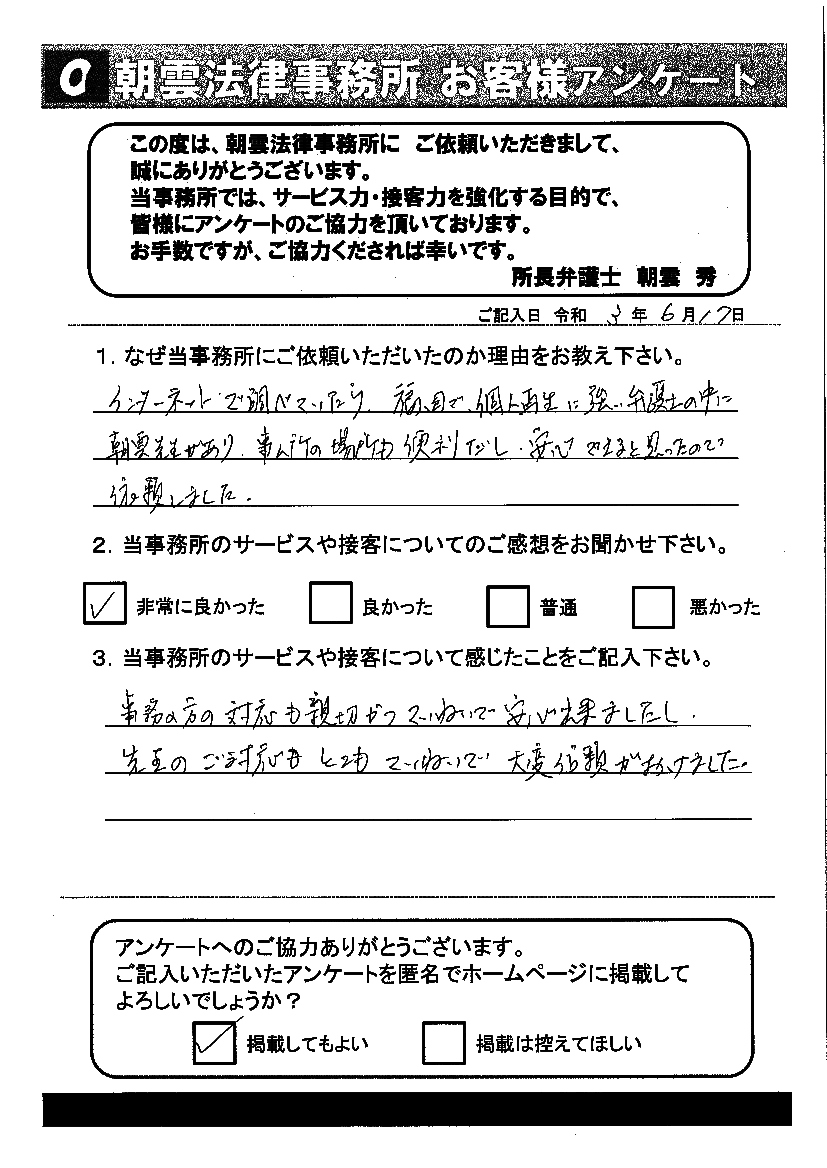 朝雲法律事務所 お客様アンケート
この度は、朝雲法律事務所に ご依頼いただきまして、
誠にありがとうございます。
当事務所では、サービス力・接客力を強化する目的で、
皆様にアンケートのご協力を頂いております。
お手数ですが、ご協力くだされば幸いです。
所長弁護士 朝雲 秀
ご記入日 令和 3 年 6 月 17 日
1. なぜ当事務所にご依頼いただいたのか理由をお教え下さい。
インターネットで調べていたら、福山で、個人再生に強い弁護士の中に
朝雲先生があり、事ム所の場所も便利だし、安心できると思ったので
依頼しました。
2. 当事務所のサービスや接客についてのご感想をお聞かせ下さい。
✓ 非常に良かった 良かった 普通 悪かった
3. 当事務所のサービスや接客について感じたことをご記入下さい。
事務の方の対応も親切かつていねいで安心出来ましたし、
先生のご対応もとてもていねいで大変信頼がおけました。
アンケートへのご協力ありがとうございます。
ご記入いただいたアンケートを匿名でホームページに掲載して
よろしいでしょうか？
✓ 掲載してもよい 掲載は控えてほしい